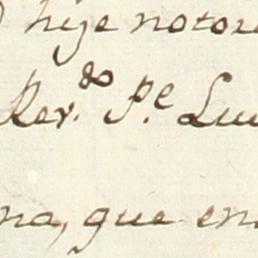 hije notor
Rev.do Pe. Lui
na, que en